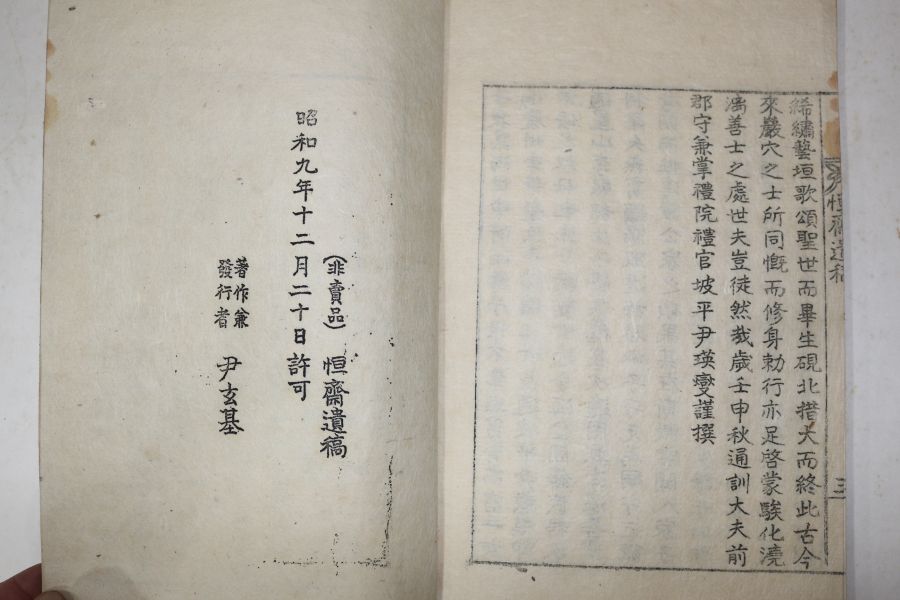 絺繡藝垣歌頌聖世而畢生硯北措大而終此古今
來巖穴之士所同慨而修身勅行亦足啓蒙駿化澆
漓善士之處世夫豈徒然哉歲壬申秋通訓大夫前
郡守兼掌禮院禮官坡平尹瑛燮謹撰
恒齋遺稿
三
(非賣品) 恒齋遺稿
昭和九年十二月二十日許可
著作兼
發行者
尹玄基